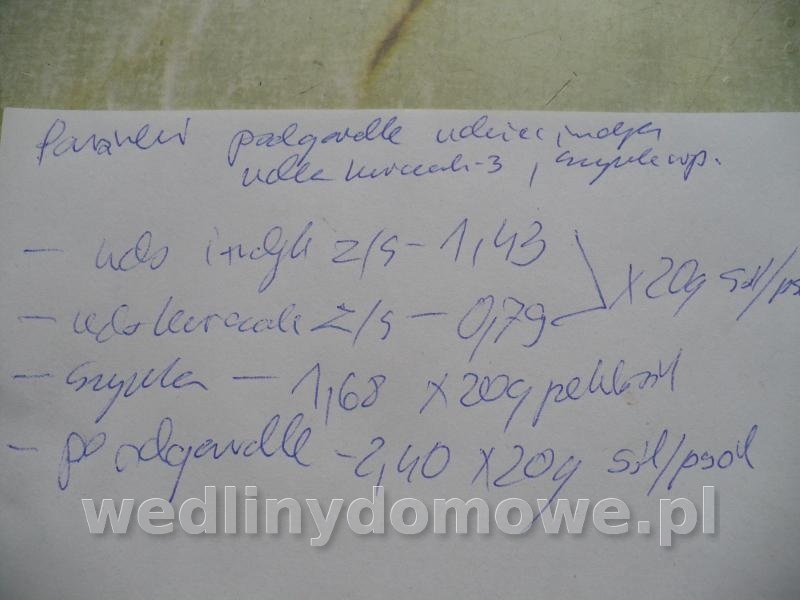 Parówki podgardle udziec indyk
udka kurczak-3, szynka wp.
— udo indyk z/s - 1,43
— udo kurczak z/s — 0,79 x 20g sól/pe
— szynka — 1,68 x 20g peklosól
— podgardle - 2,40 x 20g sól/psól
wedlinydomowe.pl